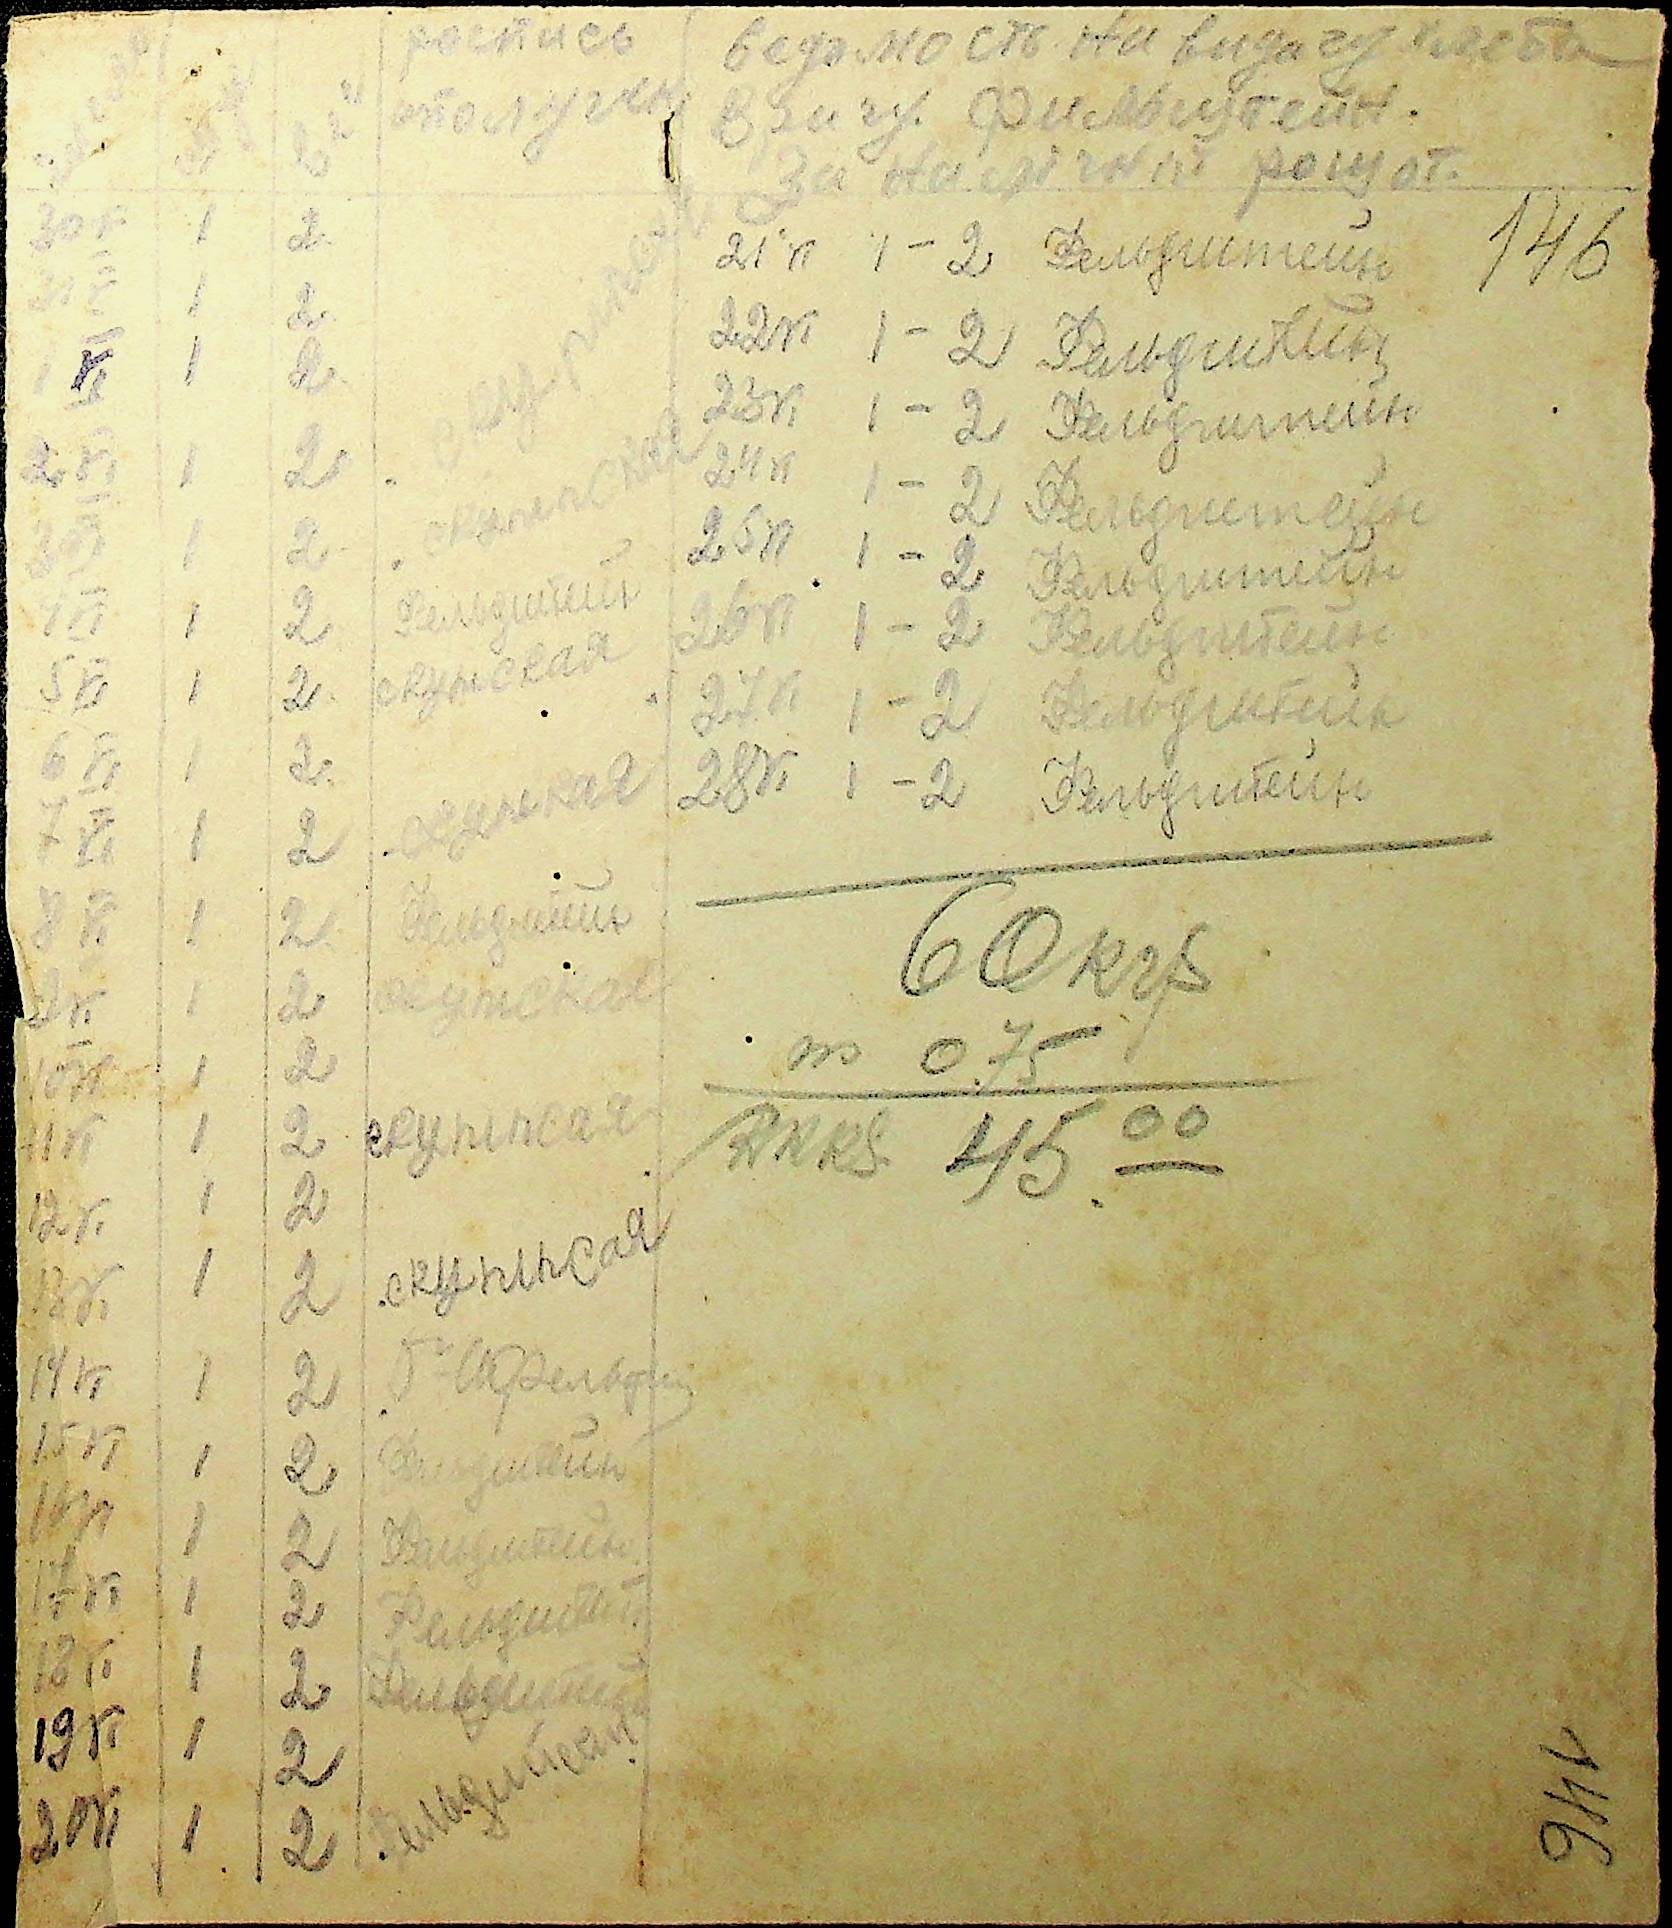 роспись
ополучен
ведомость на видачу хлеба
Врачу. Фильдштейн.
За наличний рощот.
146
30 V 1 2
31 V 1 2
1 VI 1 2
2 VI 1 2
3 VI 1 2 скупинская
4 VI 1 2 Фельдштейн
5 VI 1 2 скупская
6 VI 1 2
7 VI 1 2
8 VI 1 2 Фельдштейн
9 VI 1 2 скупская
10 VI 1 2
11 VI 1 2 скупинсая
12 VI 1 2
13 VI 1 2 скупинсая
14 VI 1 2
15 VI 1 2 Фельдштейн
16 VI 1 2 Фельдштейн
17 VI 1 2 Фельдштейн
18 VI 1 2 Фельдштейн
19 VI 1 2
20 VI 1 2 Фельдштейн
21 VI 1 - 2 Фельдштейн
22 VI 1 - 2 Фельдштейн
23 VI 1 - 2 Фельдштейн
24 VI 1 - 2 Фельдштейн
25 VI 1 - 2 Фельдштейн
26 VI 1 - 2 Фельдштейн
27 VI 1 - 2 Фельдштейн
28 VI 1 - 2 Фельдштейн
60 кг
по 0.75
RKKS. 45.00
146